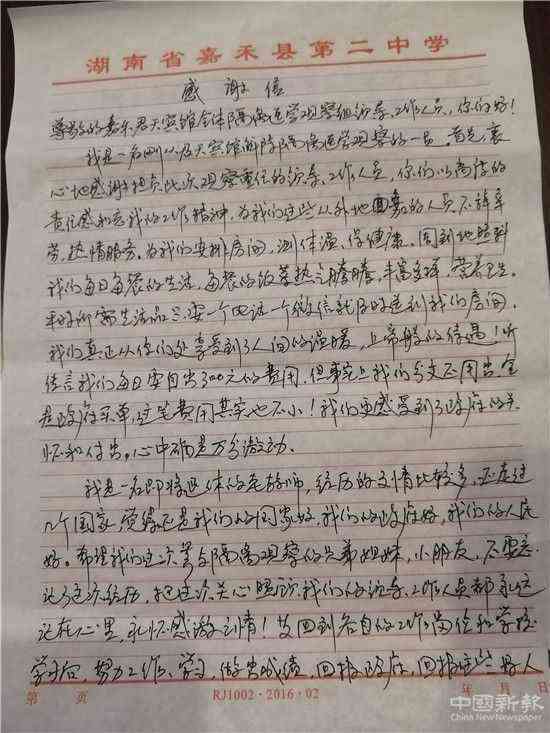 湖南省嘉禾县第二中学
感谢信
尊敬的嘉禾君天宾馆全体隔离医学观察组领导、工作人员,你们好!
我是一名刚从君天宾馆解除隔离医学观察的一员。首先,衷
心地感谢担负此次观察重任的领导、工作人员,你们以高度的
责任感和忘我的工作精神,为我们这些从外地回嘉的人员不辞辛
劳,热情服务,为我们安排房间,测体温,保健康。周到地照料
我们每日每餐的生活,每餐的饭菜热气腾腾,丰富多样,营养卫生。
平时所需生活品只要一个电话一个微信就及时送到我们房间,
我们真正从你们处享受到了人间的温暖,上帝般的待遇!听
传言我们每日要自出300元的费用,但事实上我们分文不用出,全
是政府买单,这笔费用其实也不小!我们更感受到了政府的关
怀和付出。心中确是万分激动。
我是一名即将退休的老教师,经历的事情比较多,还去过
几个国家,觉得还是我们的国家好,我们的政府好,我们的人民
好。希望我们这次参与隔离观察的兄弟姐妹,小朋友,不要忘
记了这次经历,把这次关心照顾我们的领导、工作人员都永远
记在心里,永怀感激之情!在回到各自的工作岗位和学校
学习后,努力工作、学习,做出成绩,回报政府,回报这些好人
第 页
RJ1002·2016·02
年 月 日
中國新報
China New Newspaper